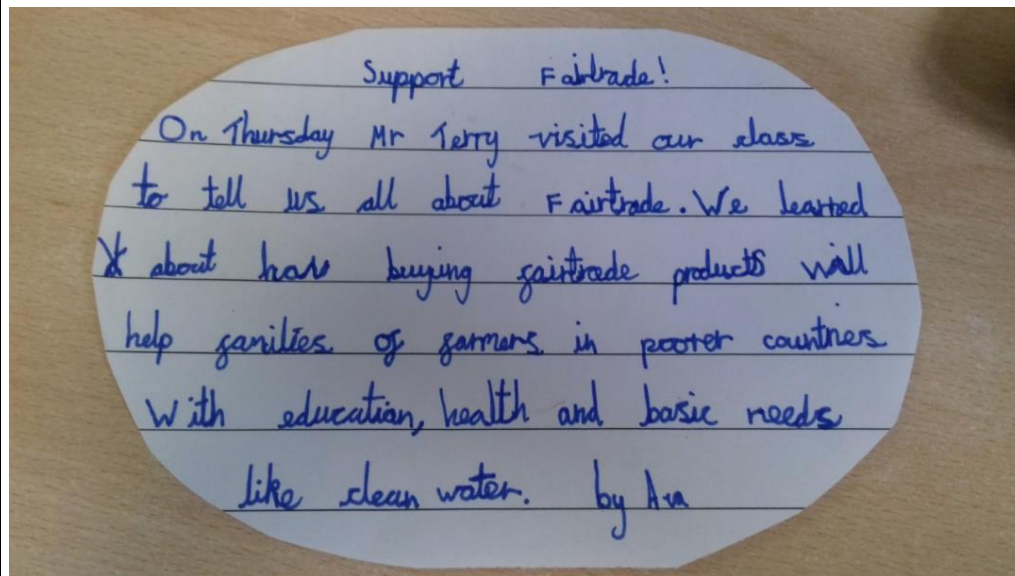 Support Fairtrade!
On Thursday Mr Terry visited our class
to tell us all about Fairtrade. We learned
about how buying fairtrade products will
help families of farmers in poorer countries
With education, health and basic needs
like clean water. by Ava